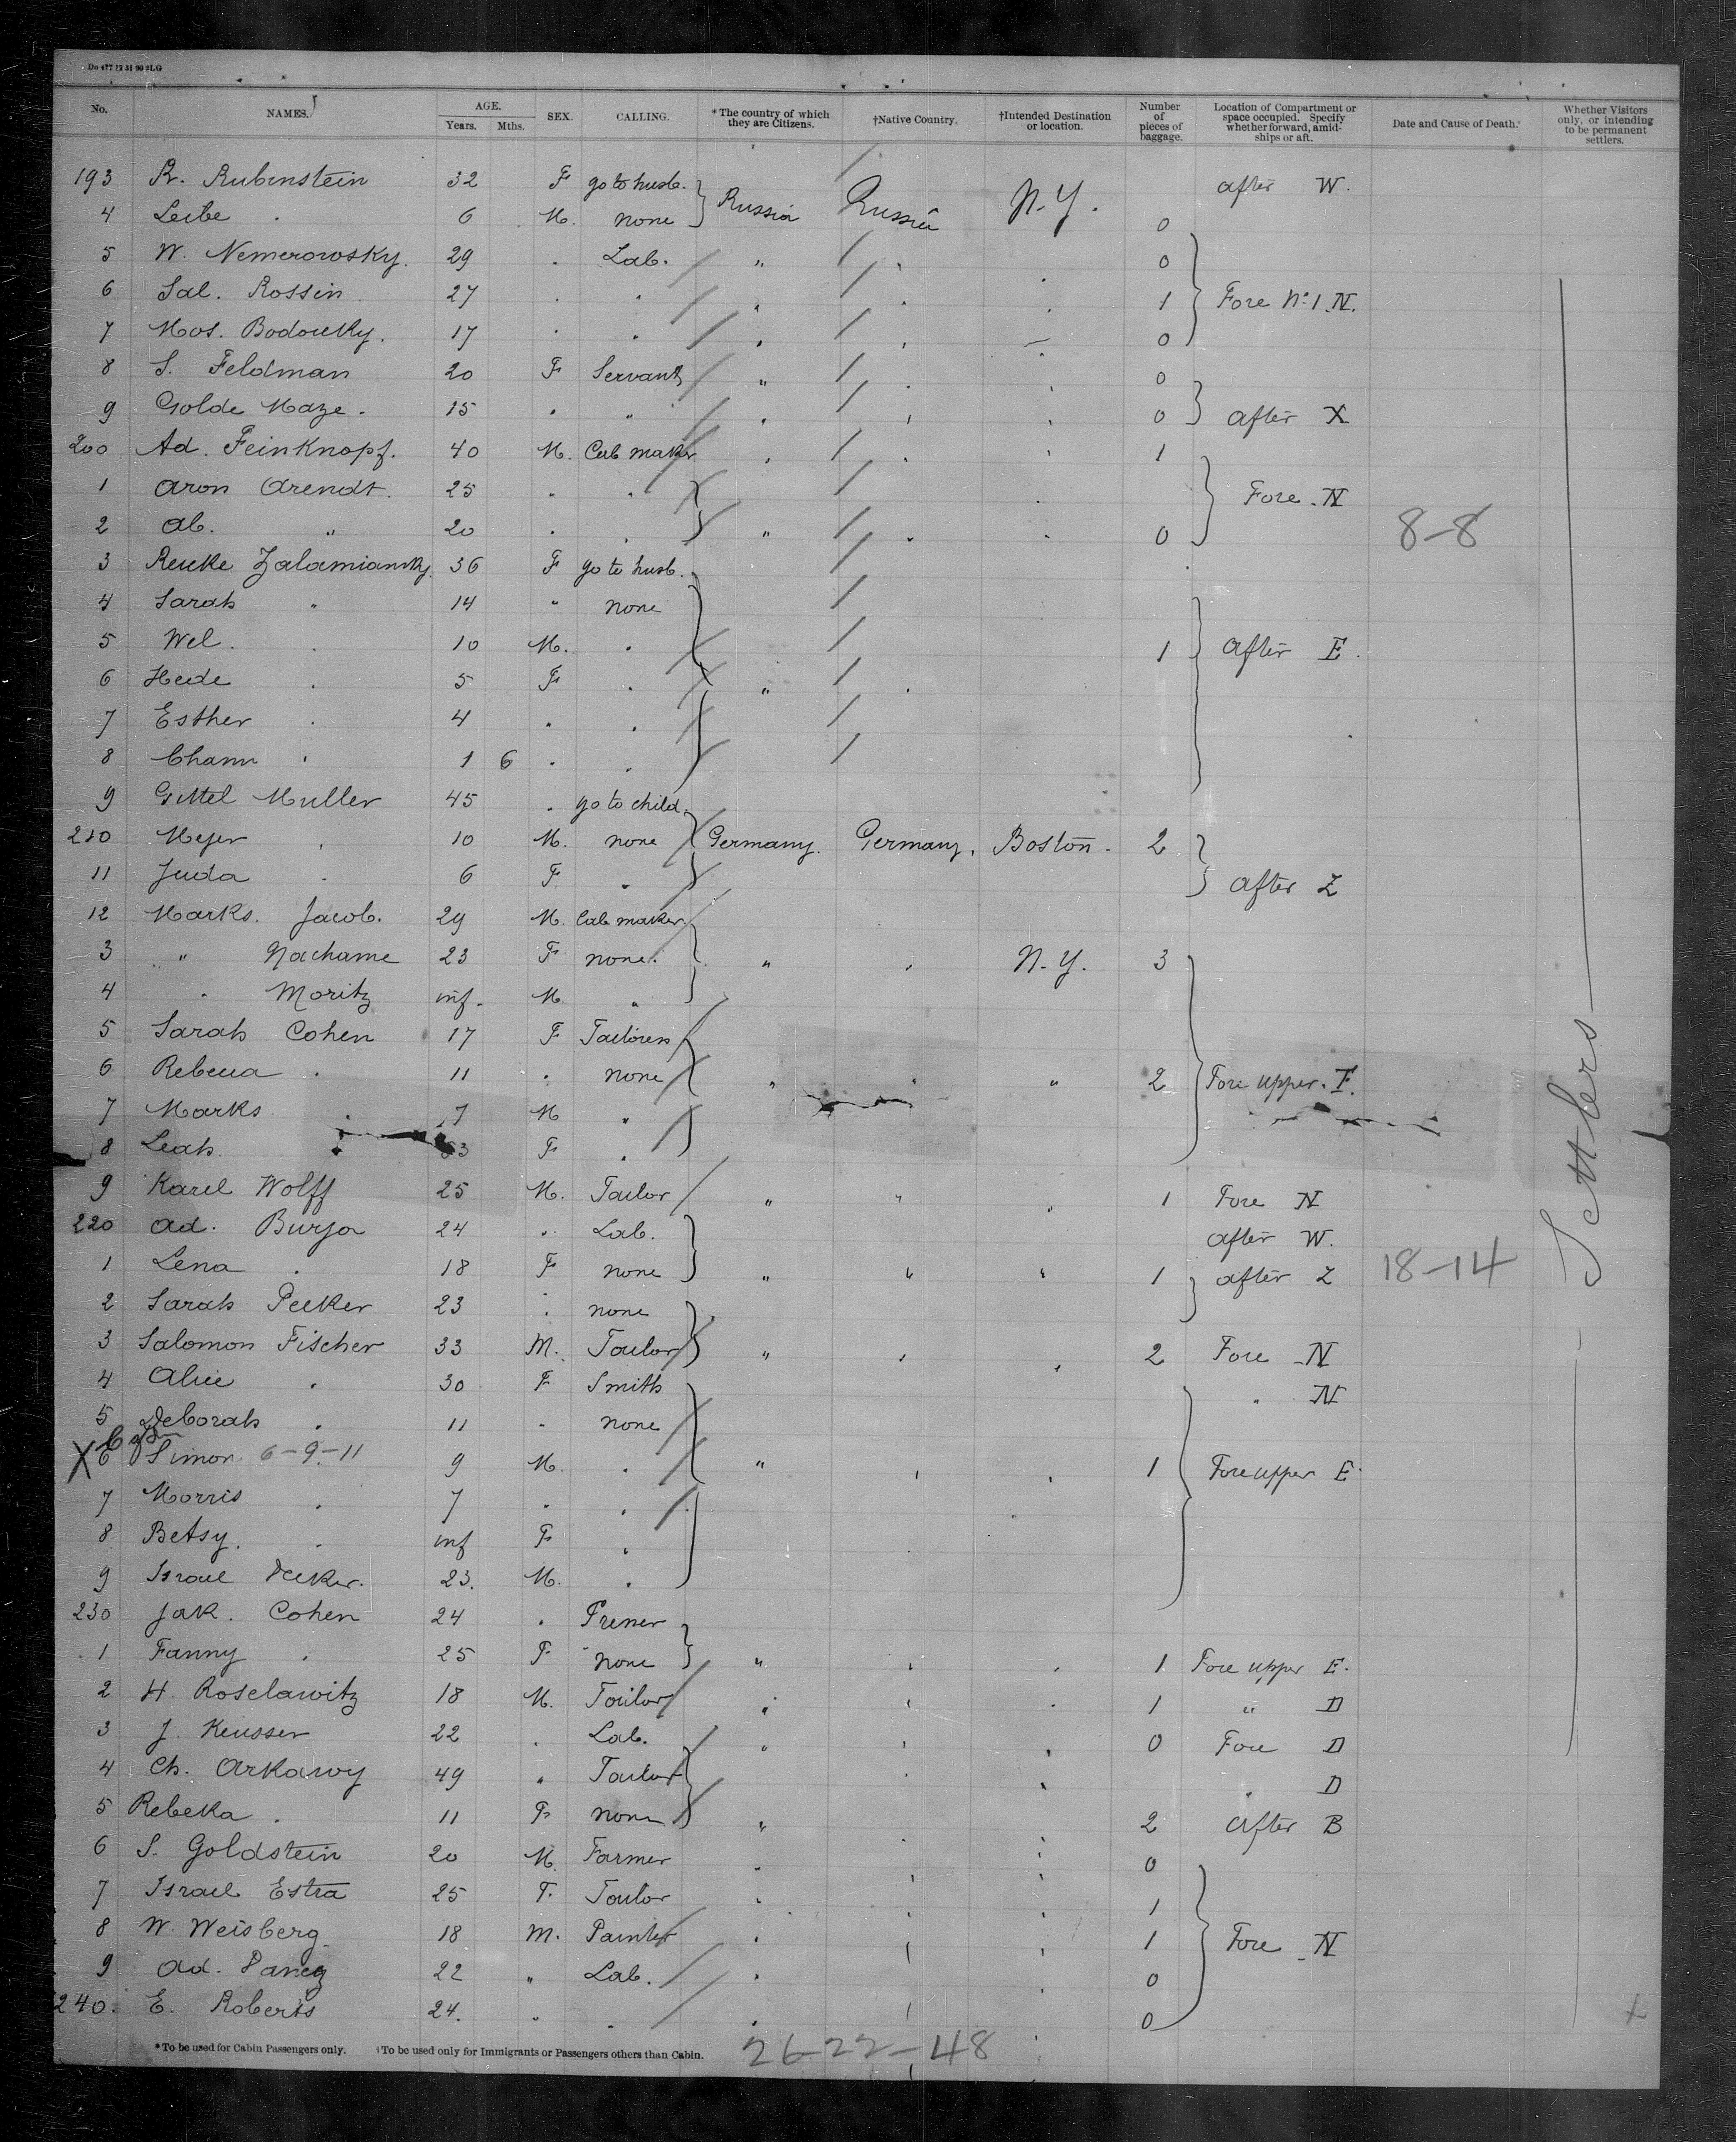 No. NAMES. AGE. Years. Mths. SEX. CALLING. *The country of which they are Citizens. †Native Country. †Intended Destination or location. Number of pieces of baggage. Location of Compartment or space occupied. Specify whether forward, amidships or aft. Date and Cause of Death. Whether Visitors only, or intending to be permanent settlers.
193 R. Rubinstein 32 F go to husb. Russia Russia N.Y. after W.
4 Leibe . 6 M. none 0
5 W. Nemerowsky. 29 . Lab. " " 0
6 Sal. Rossin 27 . . . . . 1 Fore No 1 N.
7 Mos. 17 . . . . 0
8 S. Feldman 20 F Servant " . . 0
9 Golde Maze. 15 . " . . . 0 after X
200 Ad. Feinknopf. 40 M. Cab maker . . . 1
1 Aron Arendt. 25 " . . Fore N
2 Ab. " 20 . . " . . 0 8-8
3 36 F go to husb.
4 Sarah " 14 " none
5 Wel. . 10 M. . 1 after E.
6 Hede . 5 F . " .
7 Esther . 4 . .
8 . 1 6 . .
9 Gittel Muller 45 . go to child.
210 Meyer . 10 M. none Germany. Germany. Boston. 2
11 Juda . 6 F " after Z
12 Marks. Jacob. 29 M. Cab maker.
3 " Nachame 23 F none. " . N.Y. 3
4 . Moritz inf. M. "
5 Sarah Cohen 17 F Tailoress
6 Rebecca . 11 . none . . " 2 Fore upper. E.
7 Marks . 7 M "
8 Leah F .
9 Karel Wolff 25 M. Tailor " " " 1 Fore N
220 Ad. Burja 24 . Lab. after W.
1 Lena . 18 F none " " " 1 after Z 18-14
2 Sarah Pecker 23 . none
3 Salomon Fischer 33 M. Tailor " . . 2 Fore N
4 Alice . 30 F Smith . N
5 Deborah . 11 " none
X 6 Simon 6-9-11 9 M. . " . . 1 Fore upper E.
7 Morris . 7 . .
8 Betsy. . inf F .
9 Israel 23. M. .
230 Jak. Cohen 24 . Presser
1 Fanny . 25 F none " . . 1 Fore upper E.
2 H. Roselawitz 18 M. Tailor . . . 1 " D
3 J. Keusser 22 . Lab. . . . 0 Fore D
4 Ch. Arkawy 49 " Tailor . . " D
5 Rebeka . 11 F none " 2 After B
6 S. Goldstein 20 M. Farmer . . . 0
7 Israel Estra 25 F. Tailor . . . 1
8 W. Weisberg 18 M. Painter . . . 1 Fore N
9 Ad. 22 " Lab. . . . 0
240. E. Roberts 24. " . . . . 0
Settlers
*To be used for Cabin Passengers only. †To be used only for Immigrants or Passengers others than Cabin. 26-22-48